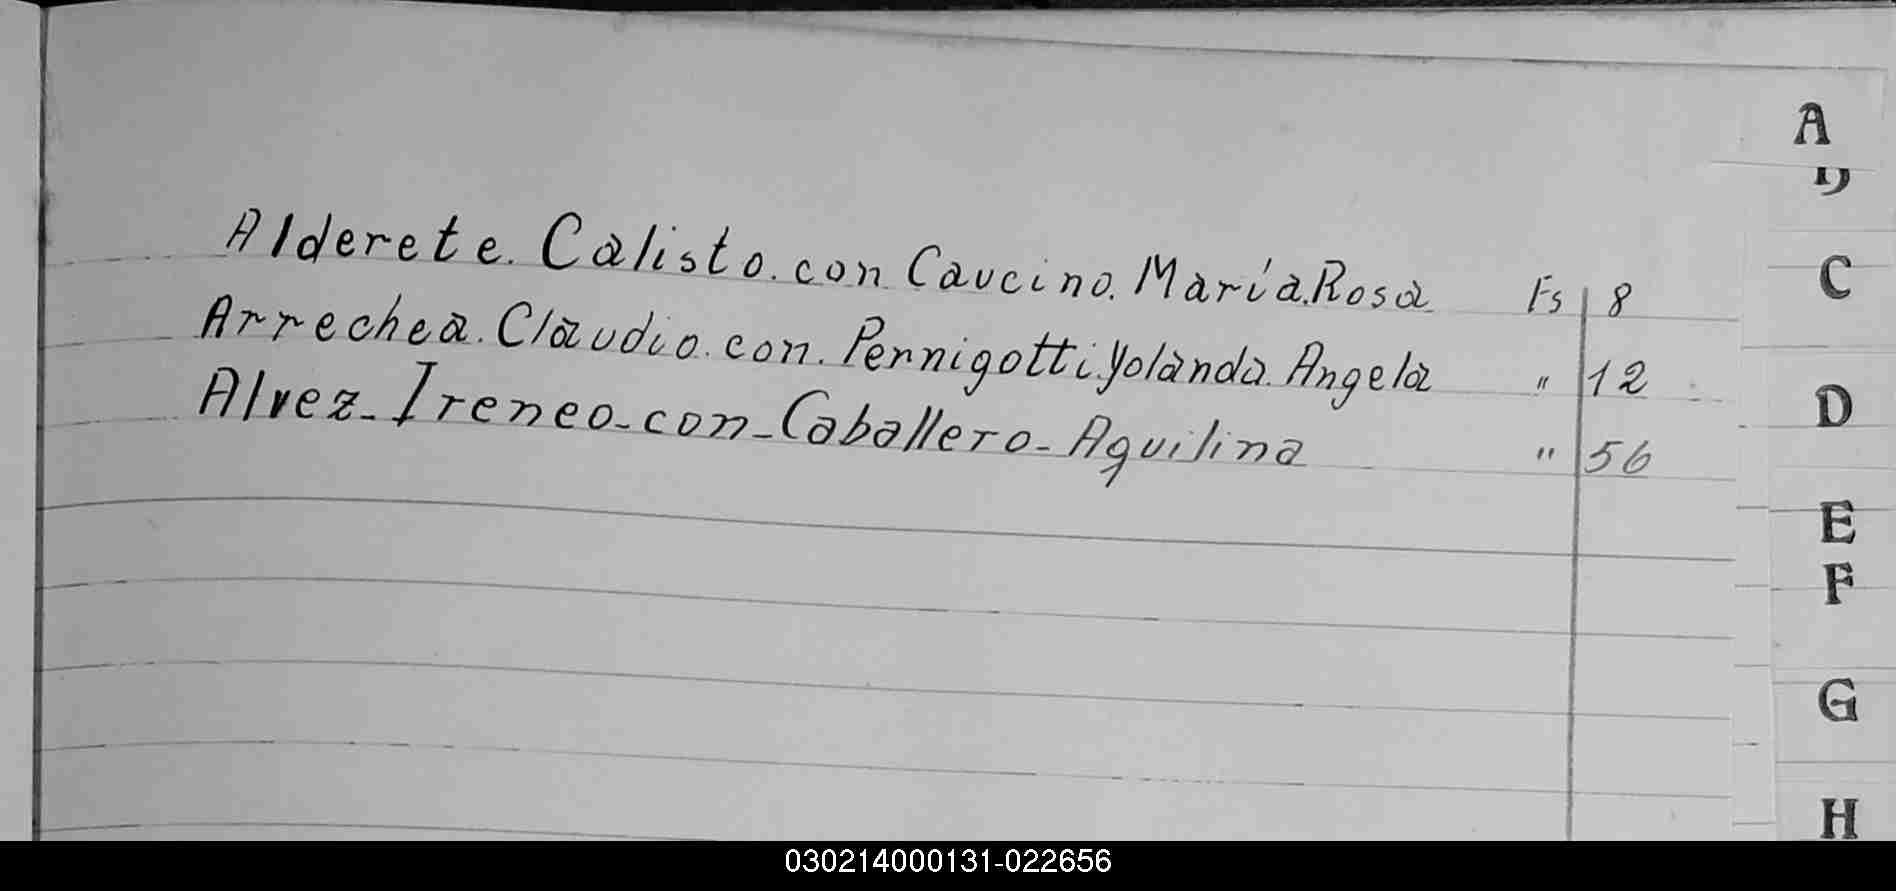 A
D
Alderete. Calisto. con Caucino. María. Rosa Fs 8
C
Arrechea. Claudio. con. Pernigotti. Yolanda. Angela " 12
D
Alvez-Ireneo-con-Caballero-Aquilina " 56
E
F
G
H
030214000131-022656